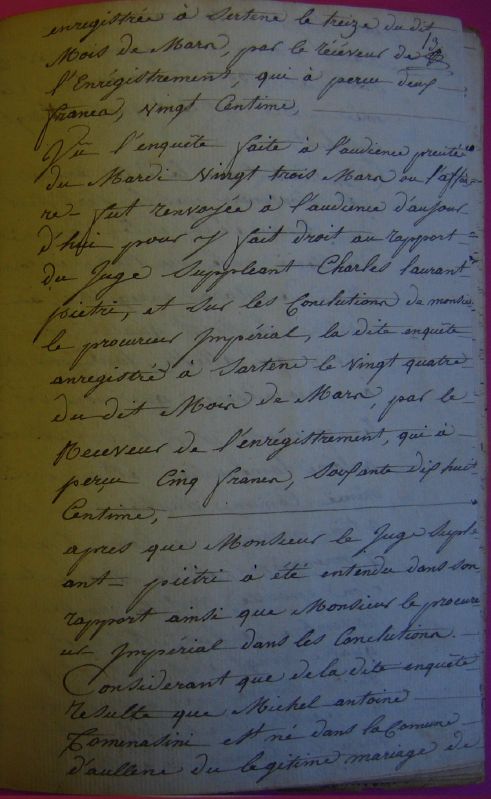 enregistrée à Sartene le treize du dit
Mois de Mars, par le réceveur de
l'Enrégistrement, qui à perçu deux
francs, vingt Centime,
Vû l'enquête faite à l'audience precité
du Mardi Vingt trois Mars ou l'affai
re fut renvoyée à l'audience d'aujour
d'hui pour y fait droit au rapport
du Juge Suppleant Charles laurant
pietri, et sur les Conclutions de monsieur
le procureur Impérial, la dite enquête
anregistré à Sartene le vingt quatre
du dit Mois de Mars, par le
Receveur de l'enrégistrement, qui à
perçu Cinq francs, Soixante dix huit
Centime,
apres que Monsieur le Juge Suple
ant piétri à été entendu dans son
rapport ainsi que Monsieur le procure
ur Impérial dans les Conclutions.
Considerant que de la dite enquête
resulte que Michel antoine
Tomenasini est né dans la Comune
d'aullene du legitime mariage de